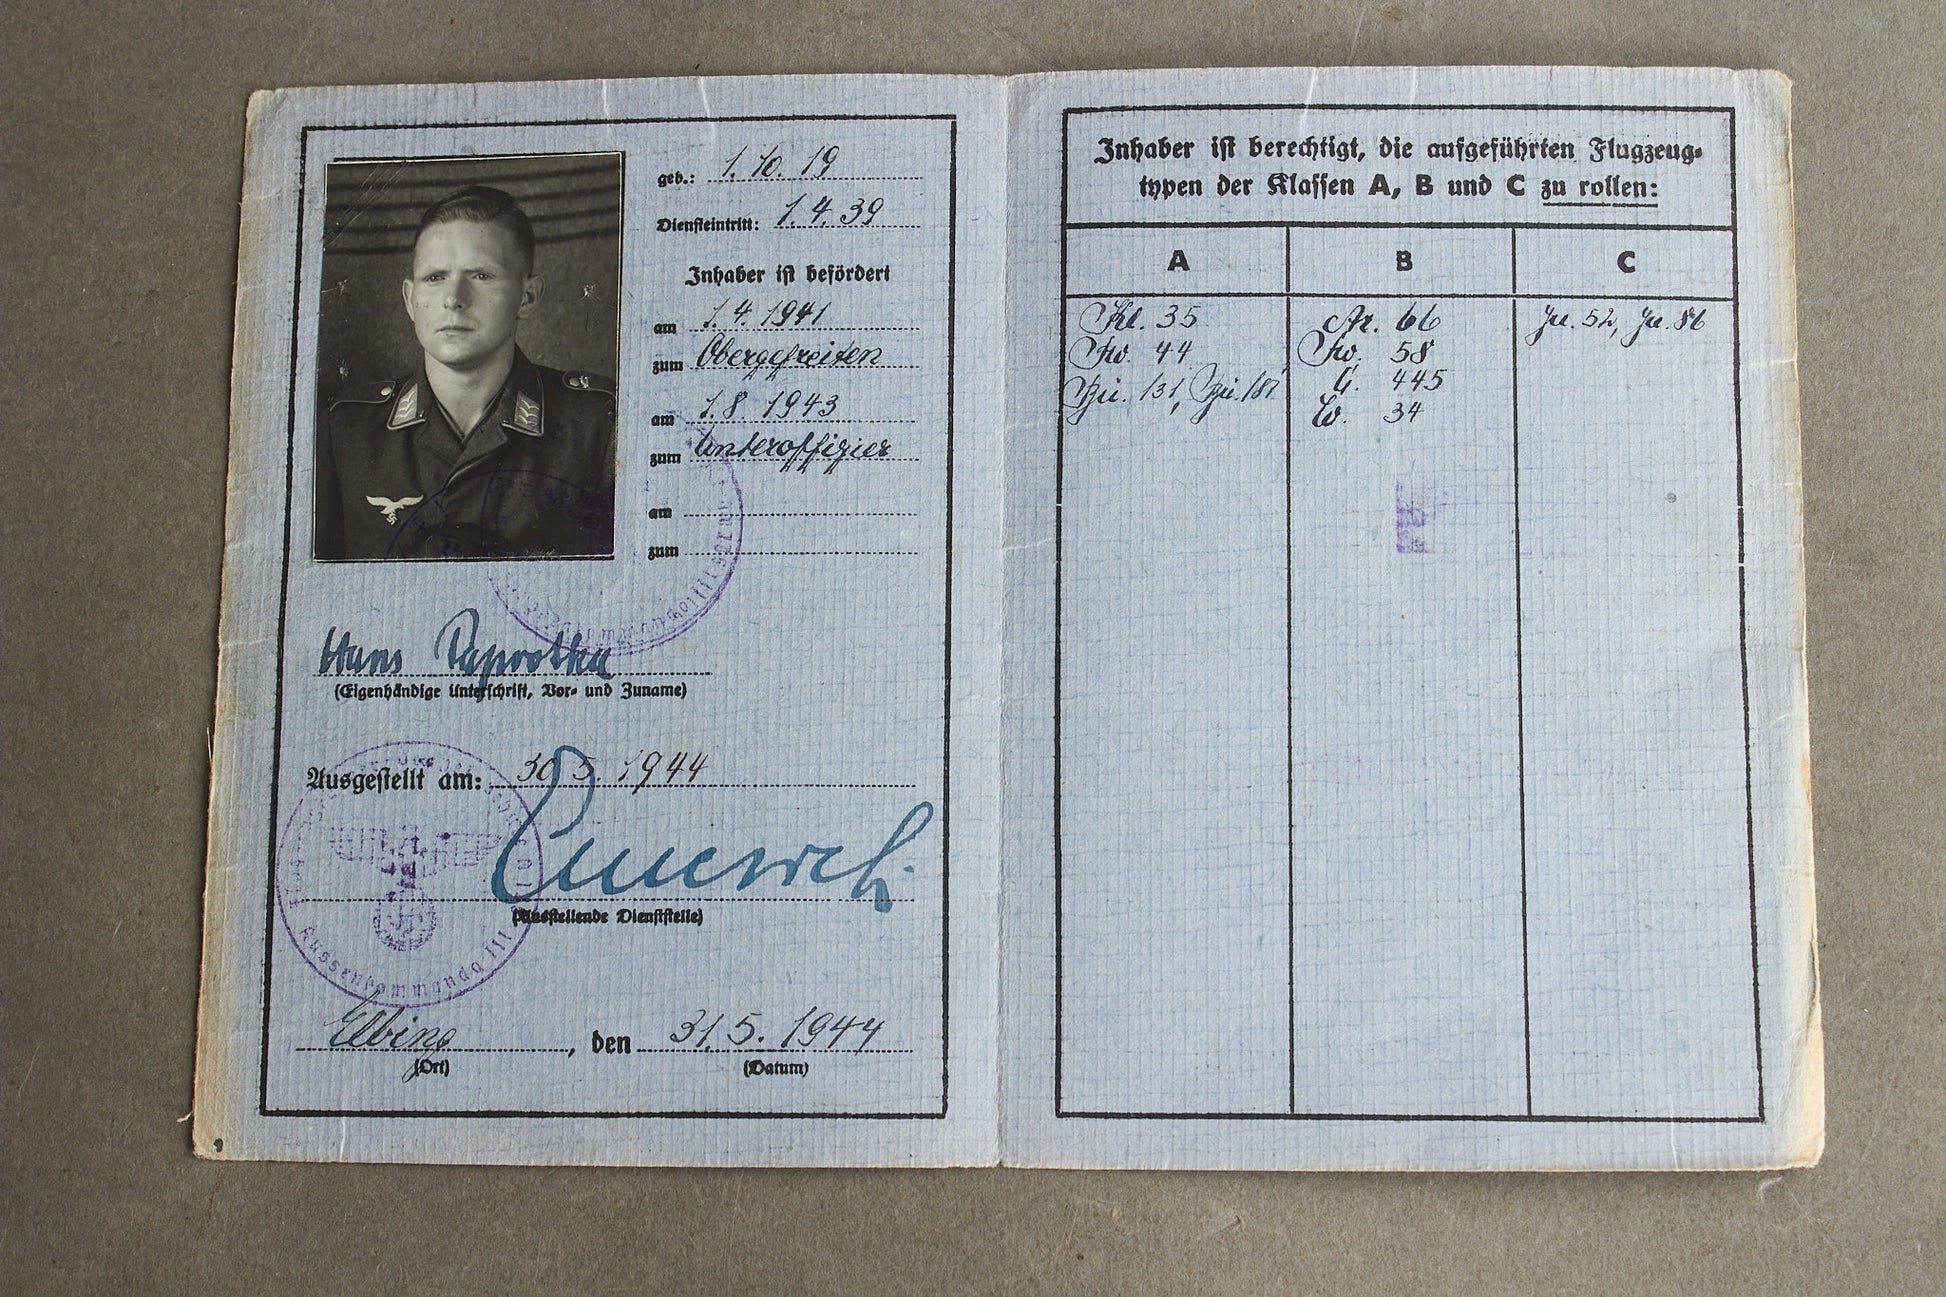 geb.: 1. 10. 19
Diensteintritt: 1. 4. 39
Inhaber ist befördert
am 1. 4. 1941
zum Obergefreiten
am 1. 8. 1943
zum Unteroffizier
am
zum
Hans
(Eigenhändige Unterschrift, Vor- und Zuname)
Ausgestellt am: 30. 5. 1944
(Ausstellende Dienststelle)
Aussenkommando III
Elbing, den 31. 5. 1944
(Ort) (Datum)
Inhaber ist berechtigt, die aufgeführten Flugzeug-
typen der Klassen A, B und C zu rollen:
A B C
Kl. 35 Ar. 66 Ju. 52, Ju. 86
Fw. 44 Fw. 58
Bü. 131, Bü. 181 G. 445
W. 34